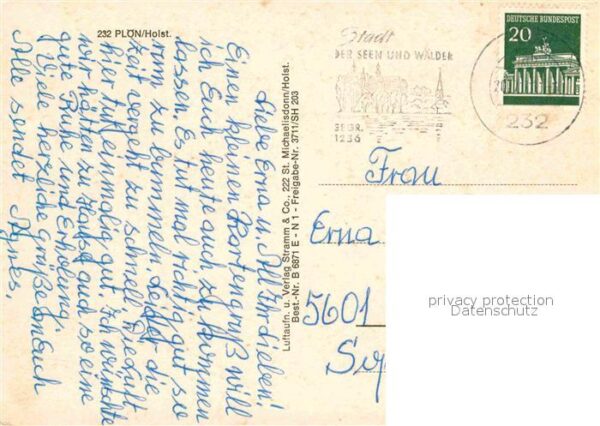 232 PLÖN/Holst.
Liebe Erna u. All Ihr Lieben!
Einen kleinen Kartengruß will
ich Euch heute auch zukommen
lassen. Es tut mal richtig gut so
rum zu bummeln. Leider die
Zeit vergeht zu schnell. Die Luft
hier tut einmalig gut. Ich wünschte
wir hätte zu Hause auch so eine
gute Ruhe und Erholung.
Viele herzliche Grüße an Euch
Alle sendet Agnes.
Luftaufn. u. Verlag Stramm & Co., 222 St. Michaelisdonn/Holst.
Best.-Nr. B 6871 E - N 1 - Freigabe-Nr. 3711/SH 203
Stadt
DER SEEN UND WÄLDER
SEGR.
1236
DEUTSCHE BUNDESPOST
20
232
Frau
Erna
5601
privacy protection
Datenschutz